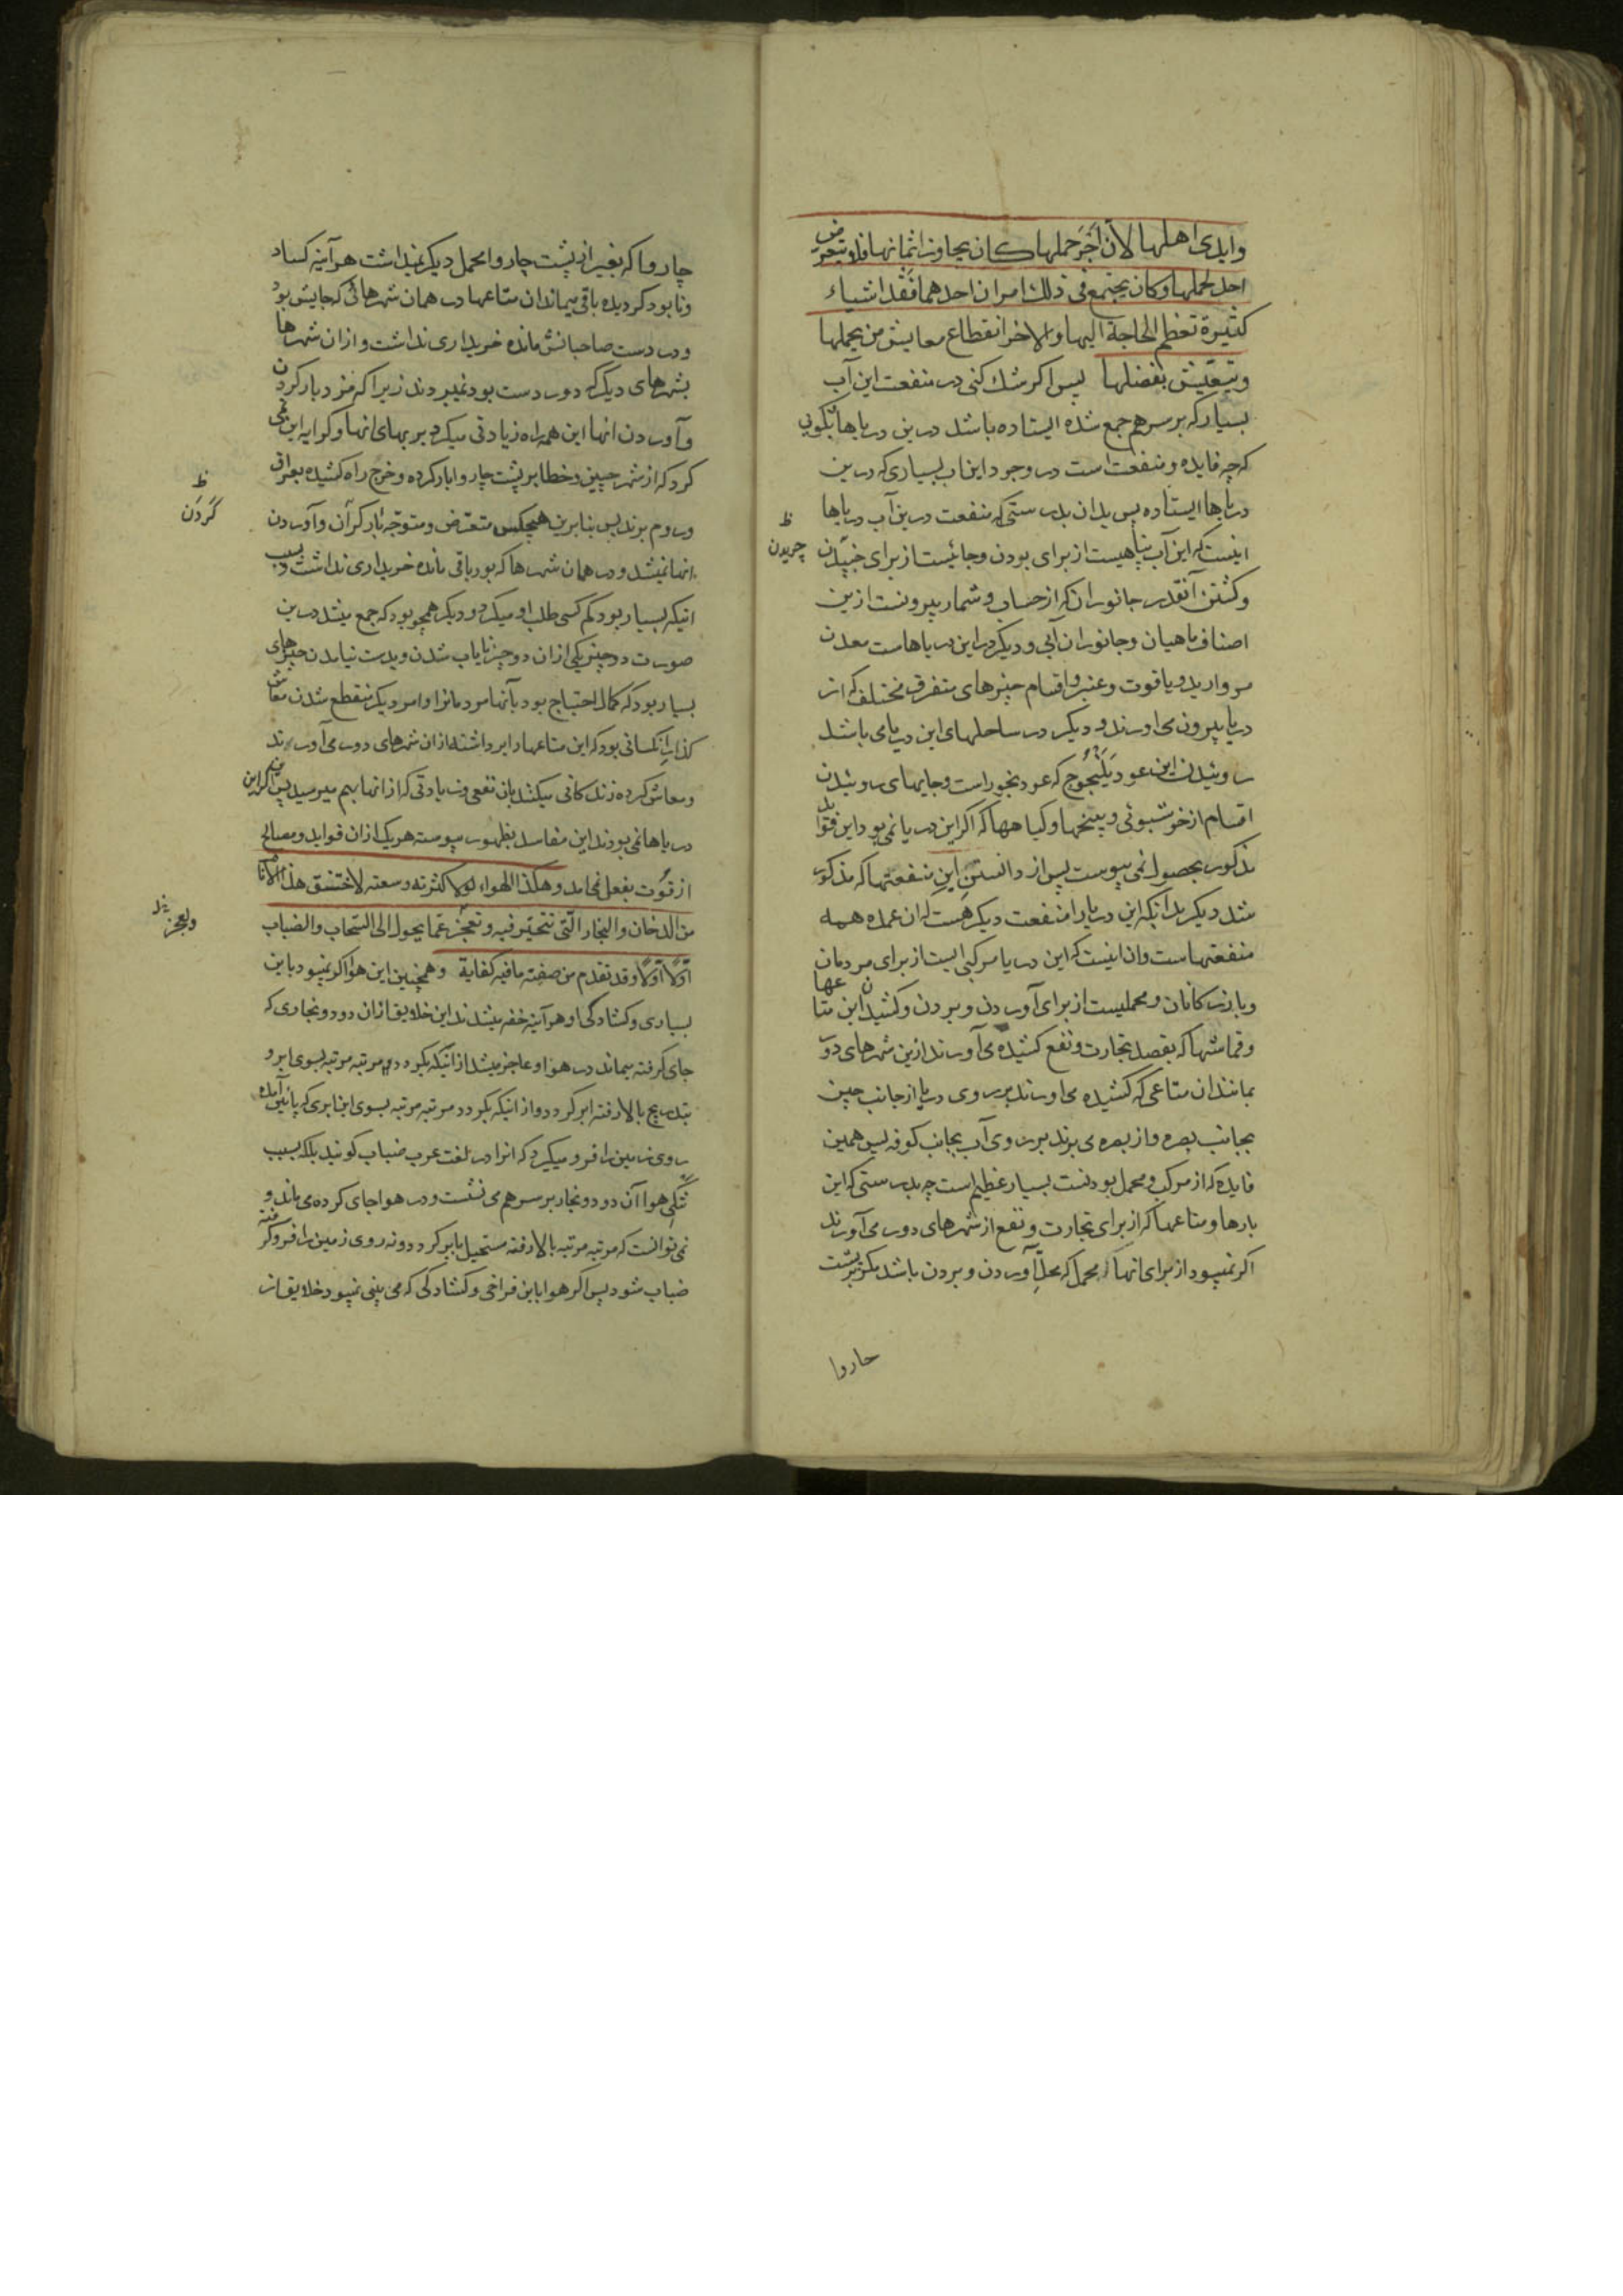 وایدی اهلها لان اَجْرَ حملها کان یجاوز اثمانها فلا یتعرض
احد لحملها وکان یجتمع فی ذلك امران احدهما فَقْد اشیاء
کثیرة تعظم الحاجة الیها والاخر انقطاع معایش من یحملها
ویتعیش بفضلها پس اکر شك کنی در منفعت این آب
بسیار که بر سر هم جمع شده ایستاده باشد درین دریاها بکویی
که چه فایده ومنفعت است در وجود این اب بسیاری که درین
دریاها ایستاده پس بدان بدرستی که منفعت درین آب دریاها
اینست که این آب پناهیست از برای بودن وجائیست از برای
چریدن
وکشتن آنقدر جانوران که از حساب وشمار بیرونست ازین
اصناف ماهیان وجانوران آبی ودیکر در این دریاهاست معدن
مروارید ویاقوت وعنبر واقسام چیزهای متفرق مختلف که از
دریا بیرون می اورند ودیکر در ساحلهای این دریا می باشد
روئیدن این عود یَلَنْجُوج که عود بخور است وجایهای روئیدن
اقسام از خوشبوئی وبیخها وکیاهها که اکر این دریا نمی بود این فواید
مذکور بحصول نمی پیوست پس از دانستنِ این منفعتها که مذکور
شد دیکر بدانکه این دریا را منفعت دیکر هست که ان عمده همه
منفعتهاست وان اینست که این دریا مرکبی است از برای مردمان
وبازرکانان ومحملیست از برای آوردن وبردن وکشیدن این متاعها
وقماشها که بقصد تجارت ونفع کشیده می آورند ازین شهرهای دور
بمانند ان متاعی که کشیده می اورند بر روی دریا از جانب چین
بجانب بصره واز بصره می برند بر روی آب بجانب کوفه پس همین
فایده که از مرکب ومحمل بودنست بسیار عظیم است چه بدرستی که این
بارها ومتاعها که از برای تجارت ونفع از شهرهای دور می آورند
اکر نمیبود از برای انها محمل که محلِّ آوردن وبردن باشد مکر بر پشت
چاروا
چاروا که بغیر از پشت چاروا محمل دیکر نمیداشت هر آینه کساد
ونابود کردیده باقی میماند ان متاعها در همان شهرهائی که جایش بود
ودر دست صاحبانش مانده خریداری نداشت واز ان شهرها
بشهرهای دیکر که دور دست بود نمیبردند زیرا که مزد بار کردن
وآوردن انها این همه راه زیادتی میکرد بر بهای انها وکرایه این نمی
کرد که از شهر چین وخطا بر پشت چاروا بار کرده وخرج راه کشیده بعراق
کَردَن
وروم برند پس بنابرین هیچکس متعرض ومتوجّه بار کرآن وآوردن
انها نمیشد ودر همان شهرها که بود باقی مانده خریداری نداشت وبسبب
انیکه بسیار بود کم کسی طلب او میکرد ودیکر همچو بود که جمع میشد درین
صورت دو چیز یکی از ان دو چیز نایاب شدن وبدست نیامدن چیزهای
بسیار بود که کمال احتیاج بود بآنها مردمانرا وامر دیکر منقطع شدن معاش
کذرانِ کسانی بود که این متاعها را برداشته از ان شهرهای دور می آورند
ومعاش کرده زندکانی میکنند بان نفعی وزیادتی که از انها بهم میرسید پس اکر این
دریاها نمی بودند این مفاسد بظهور پیوسته هریك از ان فواید ومصالح
از قوّت بفعل نمی امد وهکذا الهواء لولا کثرته وسعته لاختنق هذا الانام
من الدخان والبخار التی تتحیّر فیه وتعجز عمّا یحول الی السّحاب والضباب
ویعجز
اوّلاً اوّلاً وقد تقدم من صفته ما فیه کفایة وهمچنین این هوا اکر نمیبود باین
بسیاری وکشادکی او هر آینه خفه میشدند این خلایق از ان دود وبخاری که
جای کرفته میماند در هوا وعاجز میشد از انیکه بکردد مرتبه مرتبه بسوی ابر و
بتدریج بالا رفته ابر کردد واز انیکه بکردد مرتبه مرتبه بسوی این ابری که پائین آمده
روی زمین را فرو میکیرد که انرا در لغت عرب ضباب کویند بلکه بسبب
تنکیِ هوا آن دود وبخار بر سر هم می نشست ودر هوا جای کرده می ماند و
نمی توانست که مرتبه مرتبه بالا رفته مستحیل بابر کردد ونه روی زمین را فرو کرفته
ضباب شود پس اکر هوا باین فراخی وکشادکی که می بینی نمیبود خلایق از